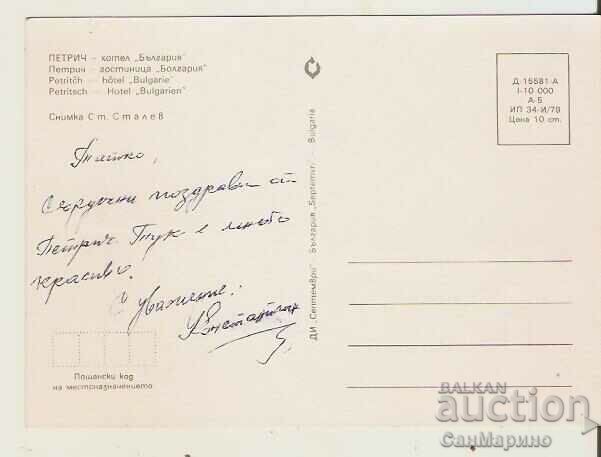 ПЕТРИЧ – хотел „България"
Петрич – гостиница „Болгария"
Petritch – hôtel "Bulgarie"
Petritsch – Hotel "Bulgarien"
Снимка Ст. Сталев
Татко,
Сърдечни поздрави от
Петрич. Тук е много
красиво.
С уважение:
Константин
Пощенски код
на местоназначението
ДИ „Септември" – България „Septemvri" – Bulgaria
Д-15581-А
I-10 000
А-5
ИП 34-И/79
Цена 10 ст.
BALKAN
auction
СанМарино